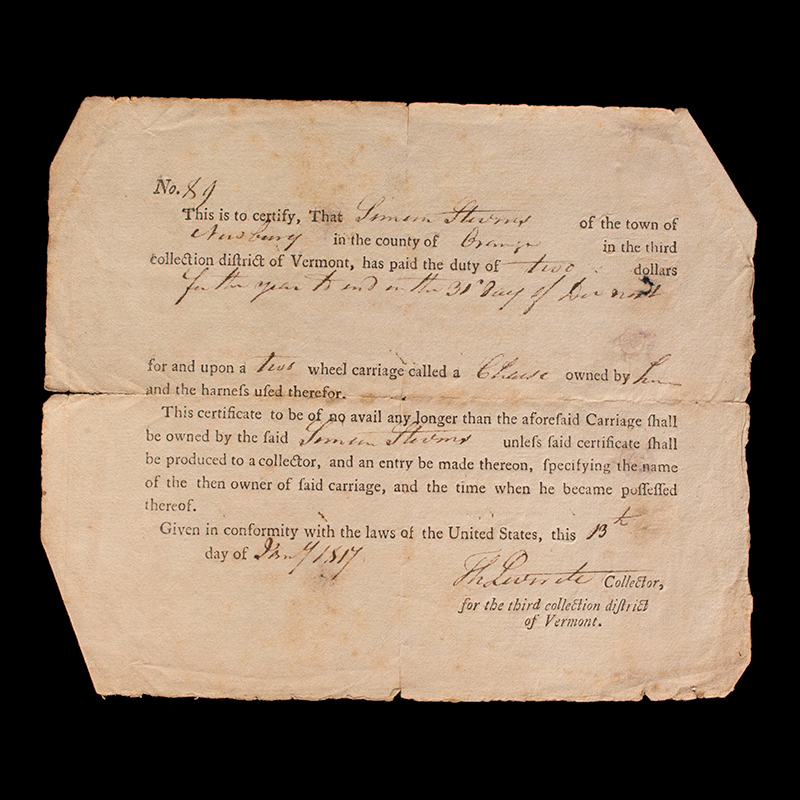 No. 89
This is to certify, That Simeon Stevens of the town of
Newbury in the county of Orange in the third
collection diſtrict of Vermont, has paid the duty of two dollars
for the year to end on the 31st day of Dec next
for and upon a two wheel carriage called a Chaise owned by him
and the harneſs uſed therefor.
This certificate to be of no avail any longer than the aforeſaid Carriage ſhall
be owned by the ſaid Simeon Stevens unleſs ſaid certificate ſhall
be produced to a collector, and an entry be made thereon, ſpecifying the name
of the then owner of ſaid carriage, and the time when he became poſſeſſed
thereof.
Given in conformity with the laws of the United States, this 13th
day of Jany 1817
Collector,
for the third collection diſtrict
of Vermont.